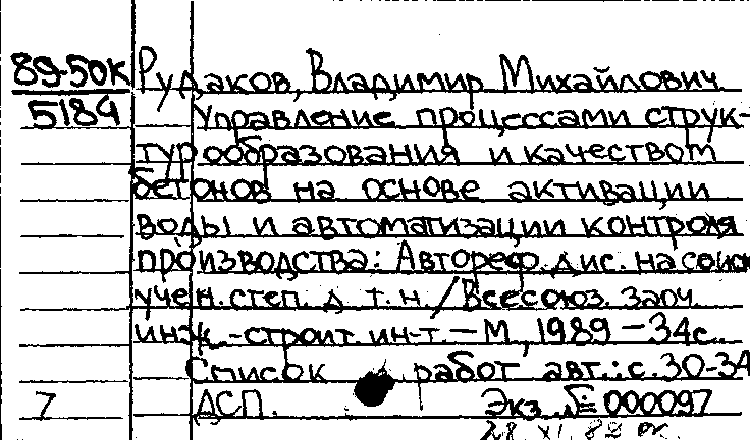 89-50К Рудаков, Владимир Михайлович
5184 Управление процессами струк-
турообразования и качеством
бетонов на основе активации
воды и автоматизации контроля
производства: Автореф. дис. на соиск
учен. степ. д. т. н. / Всесоюз. заоч.
инж.-строит. ин-т. – М., 1989 – 34с.
Список работ авт.: с. 30-34
7 ДСП. Экз. № 000097
28. XI. 89